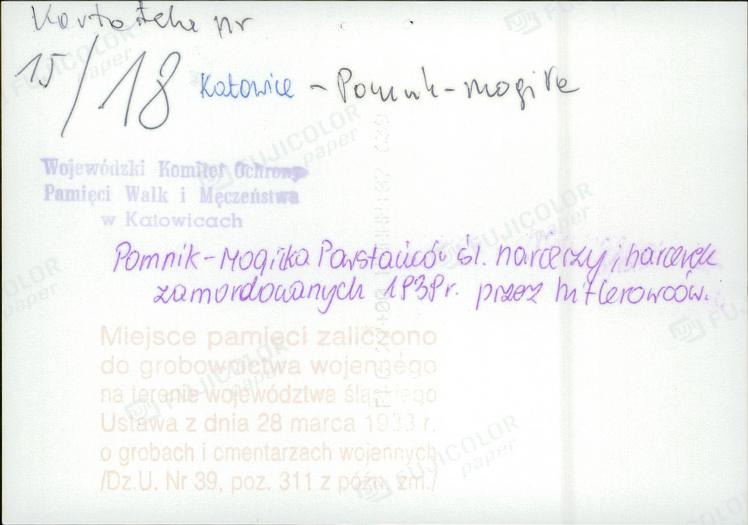 Kartoteka nr
15/18 Katowice - Pomnik-mogiła
Wojewódzki Komitet Ochrony
Pamięci Walk i Męczeństwa
w Katowicach
Pomnik-Mogiłka Powstańców śl. harcerzy i harcerek
zamordowanych 1939r. przez hitlerowców.
Miejsce pamięci zaliczono
do grobownictwa wojennego
na terenie województwa śląskiego
Ustawa z dnia 28 marca 1933 r.
o grobach i cmentarzach wojennych
/Dz.U. Nr 39, poz. 311 z późn. zm./
FUJICOLOR
paper